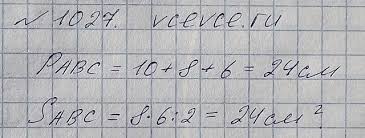 № 1027. vcevce.ru
PABC = 10 + 8 + 6 = 24 см
SABC = 8 · 6 : 2 = 24 см²